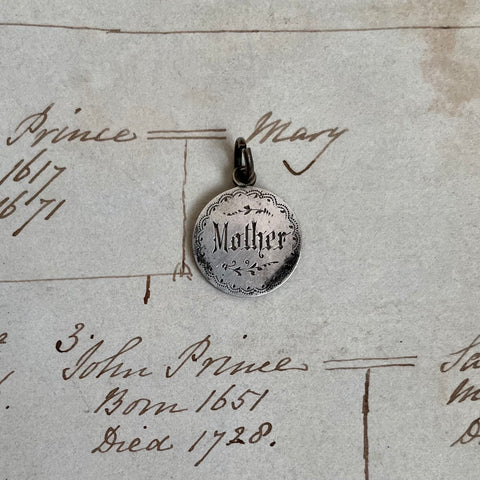 Prince Mary
1617
1671
Mother
3. John Prince
Born 1651
Died 1728.